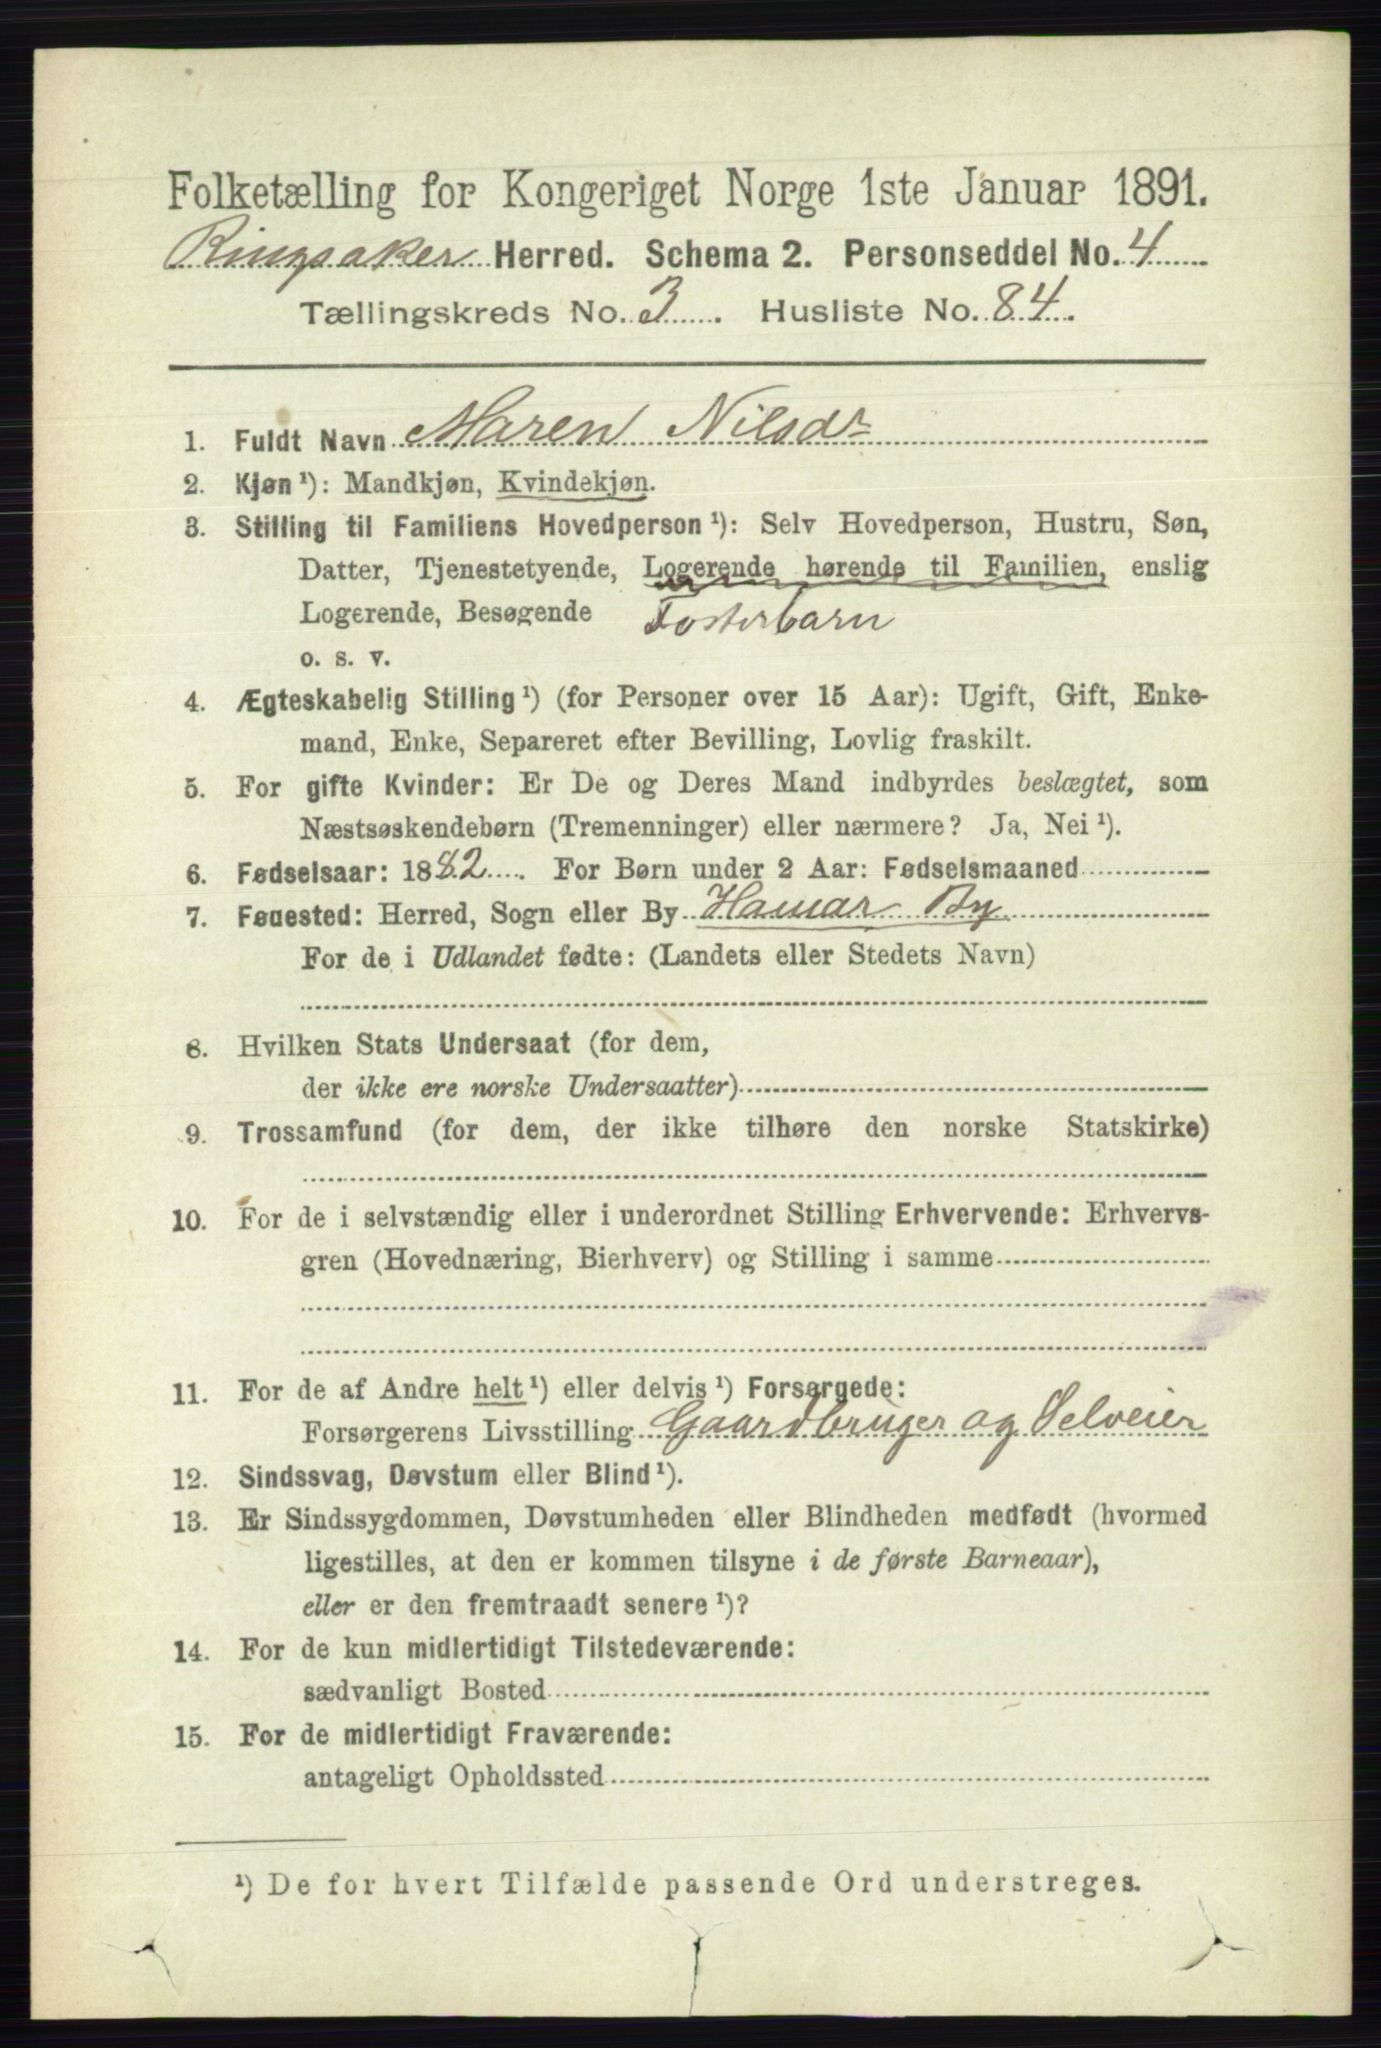 Folketælling for Kongeriget Norge 1ste Januar 1891.
Ringsaker Herred. Schema 2. Personseddel No. 4
Tællingskreds No. 3. Husliste No. 84.
1. Fuldt Navn Maren Nilsdr
2. Kjøn ¹): Mandkjøn, Kvindekjøn.
3. Stilling til Familiens Hovedperson ¹): Selv Hovedperson, Hustru, Søn,
Datter, Tjenestetyende, Logerende hørende til Familien, enslig
Logerende, Besøgende Fosterbarn
o. s. v.
4. Ægteskabelig Stilling ¹) (for Personer over 15 Aar): Ugift, Gift, Enke-
mand, Enke, Separeret efter Bevilling, Lovlig fraskilt.
5. For gifte Kvinder: Er De og Deres Mand indbyrdes beslægtet, som
Næstsøskendebørn (Tremenninger) eller nærmere? Ja, Nei ¹).
6. Fødselsaar: 1882. For Børn under 2 Aar: Fødselsmaaned
7. Føuested: Herred, Sogn eller By Hamar By
For de i Udlandet fødte: (Landets eller Stedets Navn)
8. Hvilken Stats Undersaat (for dem,
der ikke ere norske Undersaatter)
9. Trossamfund (for dem, der ikke tilhøre den norske Statskirke)
10. For de i selvstændig eller i underordnet Stilling Erhvervende: Erhvervs-
gren (Hovednæring, Bierhverv) og Stilling i samme
11. For de af Andre helt ¹) eller delvis ¹) Forsørgede:
Forsørgerens Livsstilling Gaardbruger og Selveier
12. Sindssvag, Døvstum eller Blind ¹).
13. Er Sindssygdommen, Døvstumheden eller Blindheden medfødt (hvormed
ligestilles, at den er kommen tilsyne i de første Barneaar),
eller er den fremtraadt senere ¹)?
14. For de kun midlertidigt Tilstedeværende:
sædvanligt Bosted
15. For de midlertidigt Fraværende:
antageligt Opholdssted
¹) De for hvert Tilfælde passende Ord understreges.